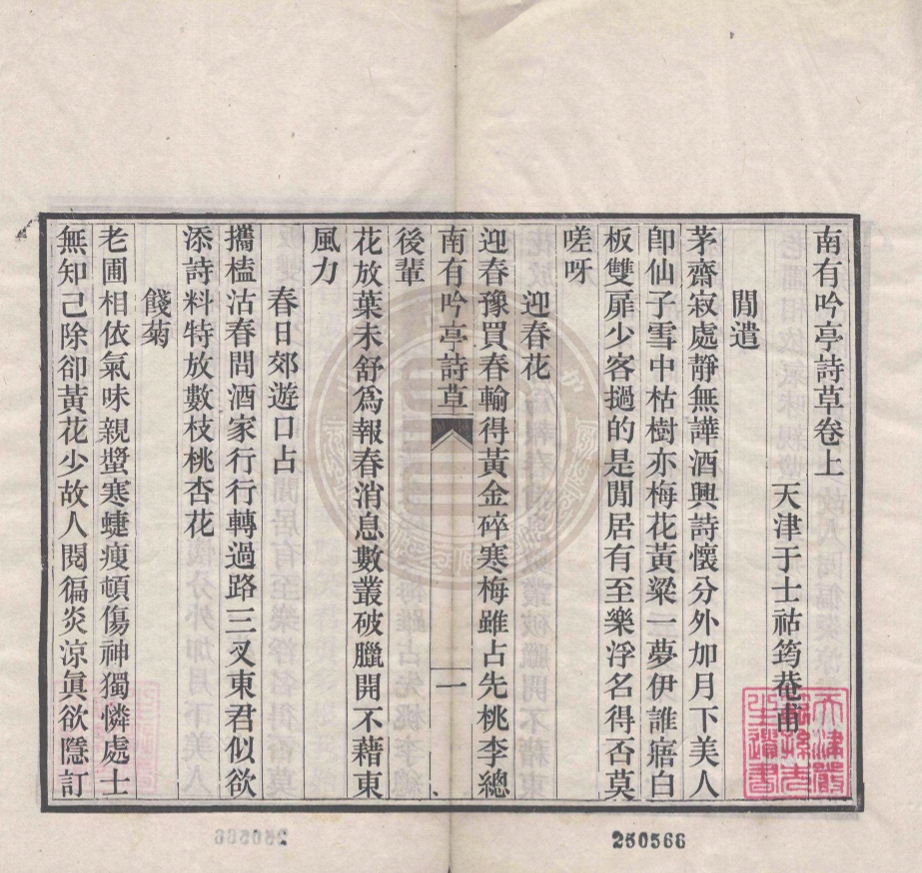 南有吟亭詩草卷上
天津于士祜筠菴甫
閒遣
茅齋寂處靜無譁酒興詩懷分外加月下美人
卽仙子雪中枯樹亦梅花黃粱一夢伊誰寤白
板雙扉少客撾的是閒居有至樂浮名得否莫
嗟呀
迎春花
迎春豫買春輸得黃金碎寒梅雖占先桃李總
南有吟亭詩草
一
後輩
花放葉未舒爲報春消息數叢破臘開不藉東
風力
春日郊遊口占
攜榼沽春問酒家行行轉過路三叉東君似欲
添詩料特放數枝桃杏花
餞菊
老圃相依氣味親蛩寒蜨瘦頓傷神獨憐處士
無知己除卻黃花少故人閱徧炎涼眞欲隱訂
250566